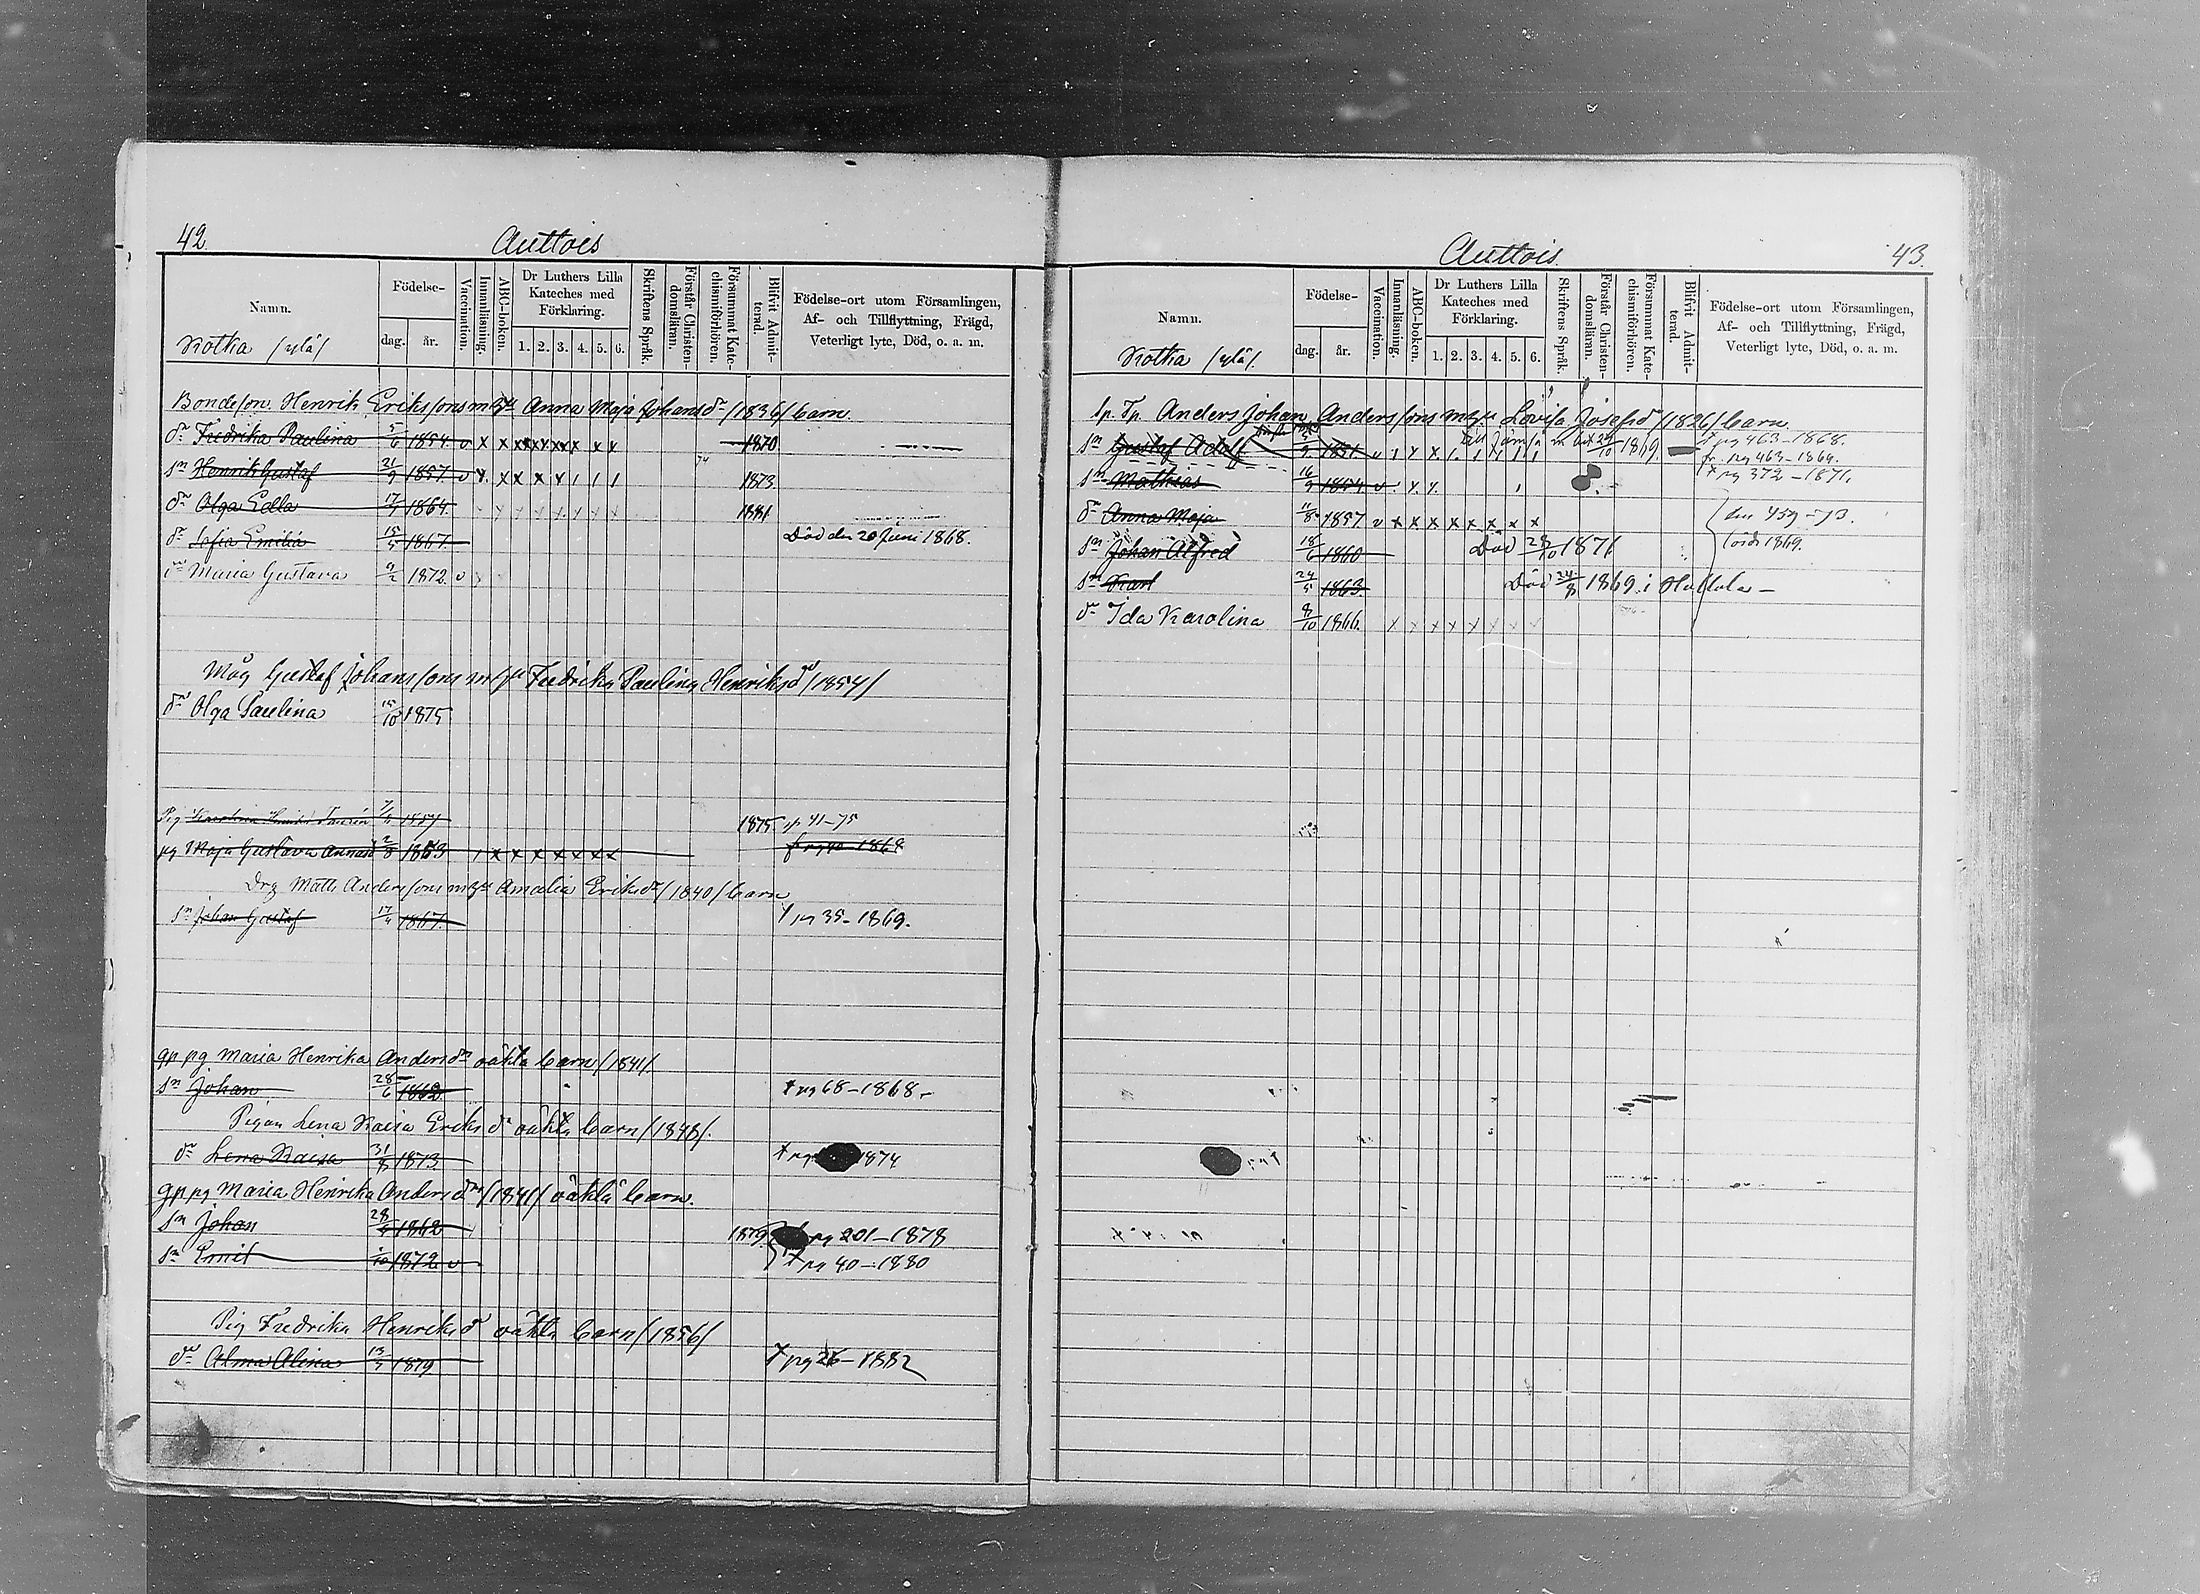 42.
Auttois
Namn.
Födelse-
dag.
år.
Vaccination.
Innanläsning.
ABC-boken.
Dr Luthers Lilla Kateches med Förklaring.
1. 2. 3. 4. 5. 6.
Skriftens Språk.
Förstår Christendomsläran.
Försummat Katechismiförhören.
Blifvit Admitterad.
Födelse-ort utom Församlingen,
Af- och Tillflyttning, Frägd,
Veterligt lyte, Död, o. a. m.
Kotka /ylä/
Bondeson Henrik Erikssons m hu Anna Maja Johansdr /1836/ barn.
dr Fredrika Paulina 5/6 1854 v x x x x x x x x x 1870
sn Henrik Gustaf 21/9 1857 v x x x x x 1 1 1 74 1873
dr Olga Edla 17/7 1864 1881
dr Sofia Emilia 15/5 1867 Död den 20 Juni 1868.
dr Maria Gustava 9/2 1872 v
Måg Gustaf Johanssons m hu Fredrika Paulina Henriksdr /1854/
dr Olga Paulina 15/10 1875
Pig 1857 1875 41-75
pg Maja Gustava 2/8 1853 x x x x x x x 1868
Drg Matts Anderssons m hu Amalia Eriksdr /1840/ barn
sn Johan Gustaf 17/4 1867 pg 35-1869.
gp pg Maria Henrika Andersdr oäkta barn /1841/
sn Johan 28/6 1862 pg 68-1868.
Pigan Lena Kaisa Eriksdr oäkta barn /1848/.
dr Lena Kaisa 31/8 1873 1874
gp pg Maria Henrika Andersdr /1841/ oäkta barn.
sn Johan 28/6 1862 1879 pg 201-1878
sn Emil 1872 v pg 40-1880
Pig Fredrika Henriksdr oäkta barn /1856/
dr Alma Alina 13/7 1879 pg 26-1882
43.
Auttois.
Namn.
Födelse-
dag.
år.
Vaccination.
Innanläsning.
ABC-boken.
Dr Luthers Lilla Kateches med Förklaring.
1. 2. 3. 4. 5. 6.
Skriftens Språk.
Förstår Christendomsläran.
Försummat Katechismiförhören.
Blifvit Admitterad.
Födelse-ort utom Församlingen,
Af- och Tillflyttning, Frägd,
Veterligt lyte, Död, o. a. m.
Kotka /ylä/.
Sp. Tp. Anders Johan Anderssons m hu Lovisa Josefsdr /1826/ barn.
sn Gustaf Adolf 1851 v till Jämsä 1869 pg 463-1868.
fr. pg 463-1869.
sn Mathias 16/9 1854 v pg 372-1871.
dr Anna Maja 1/8 1857 v x x x x x x x x 459-73.
sn Johan Alfred 18/6 1860 Död 28/10 1871 1869.
sn Karl 24/5 1863 Död 24/8 1869 i Hollola
dr Ida Karolina 8/10 1866 x x x x x x x x